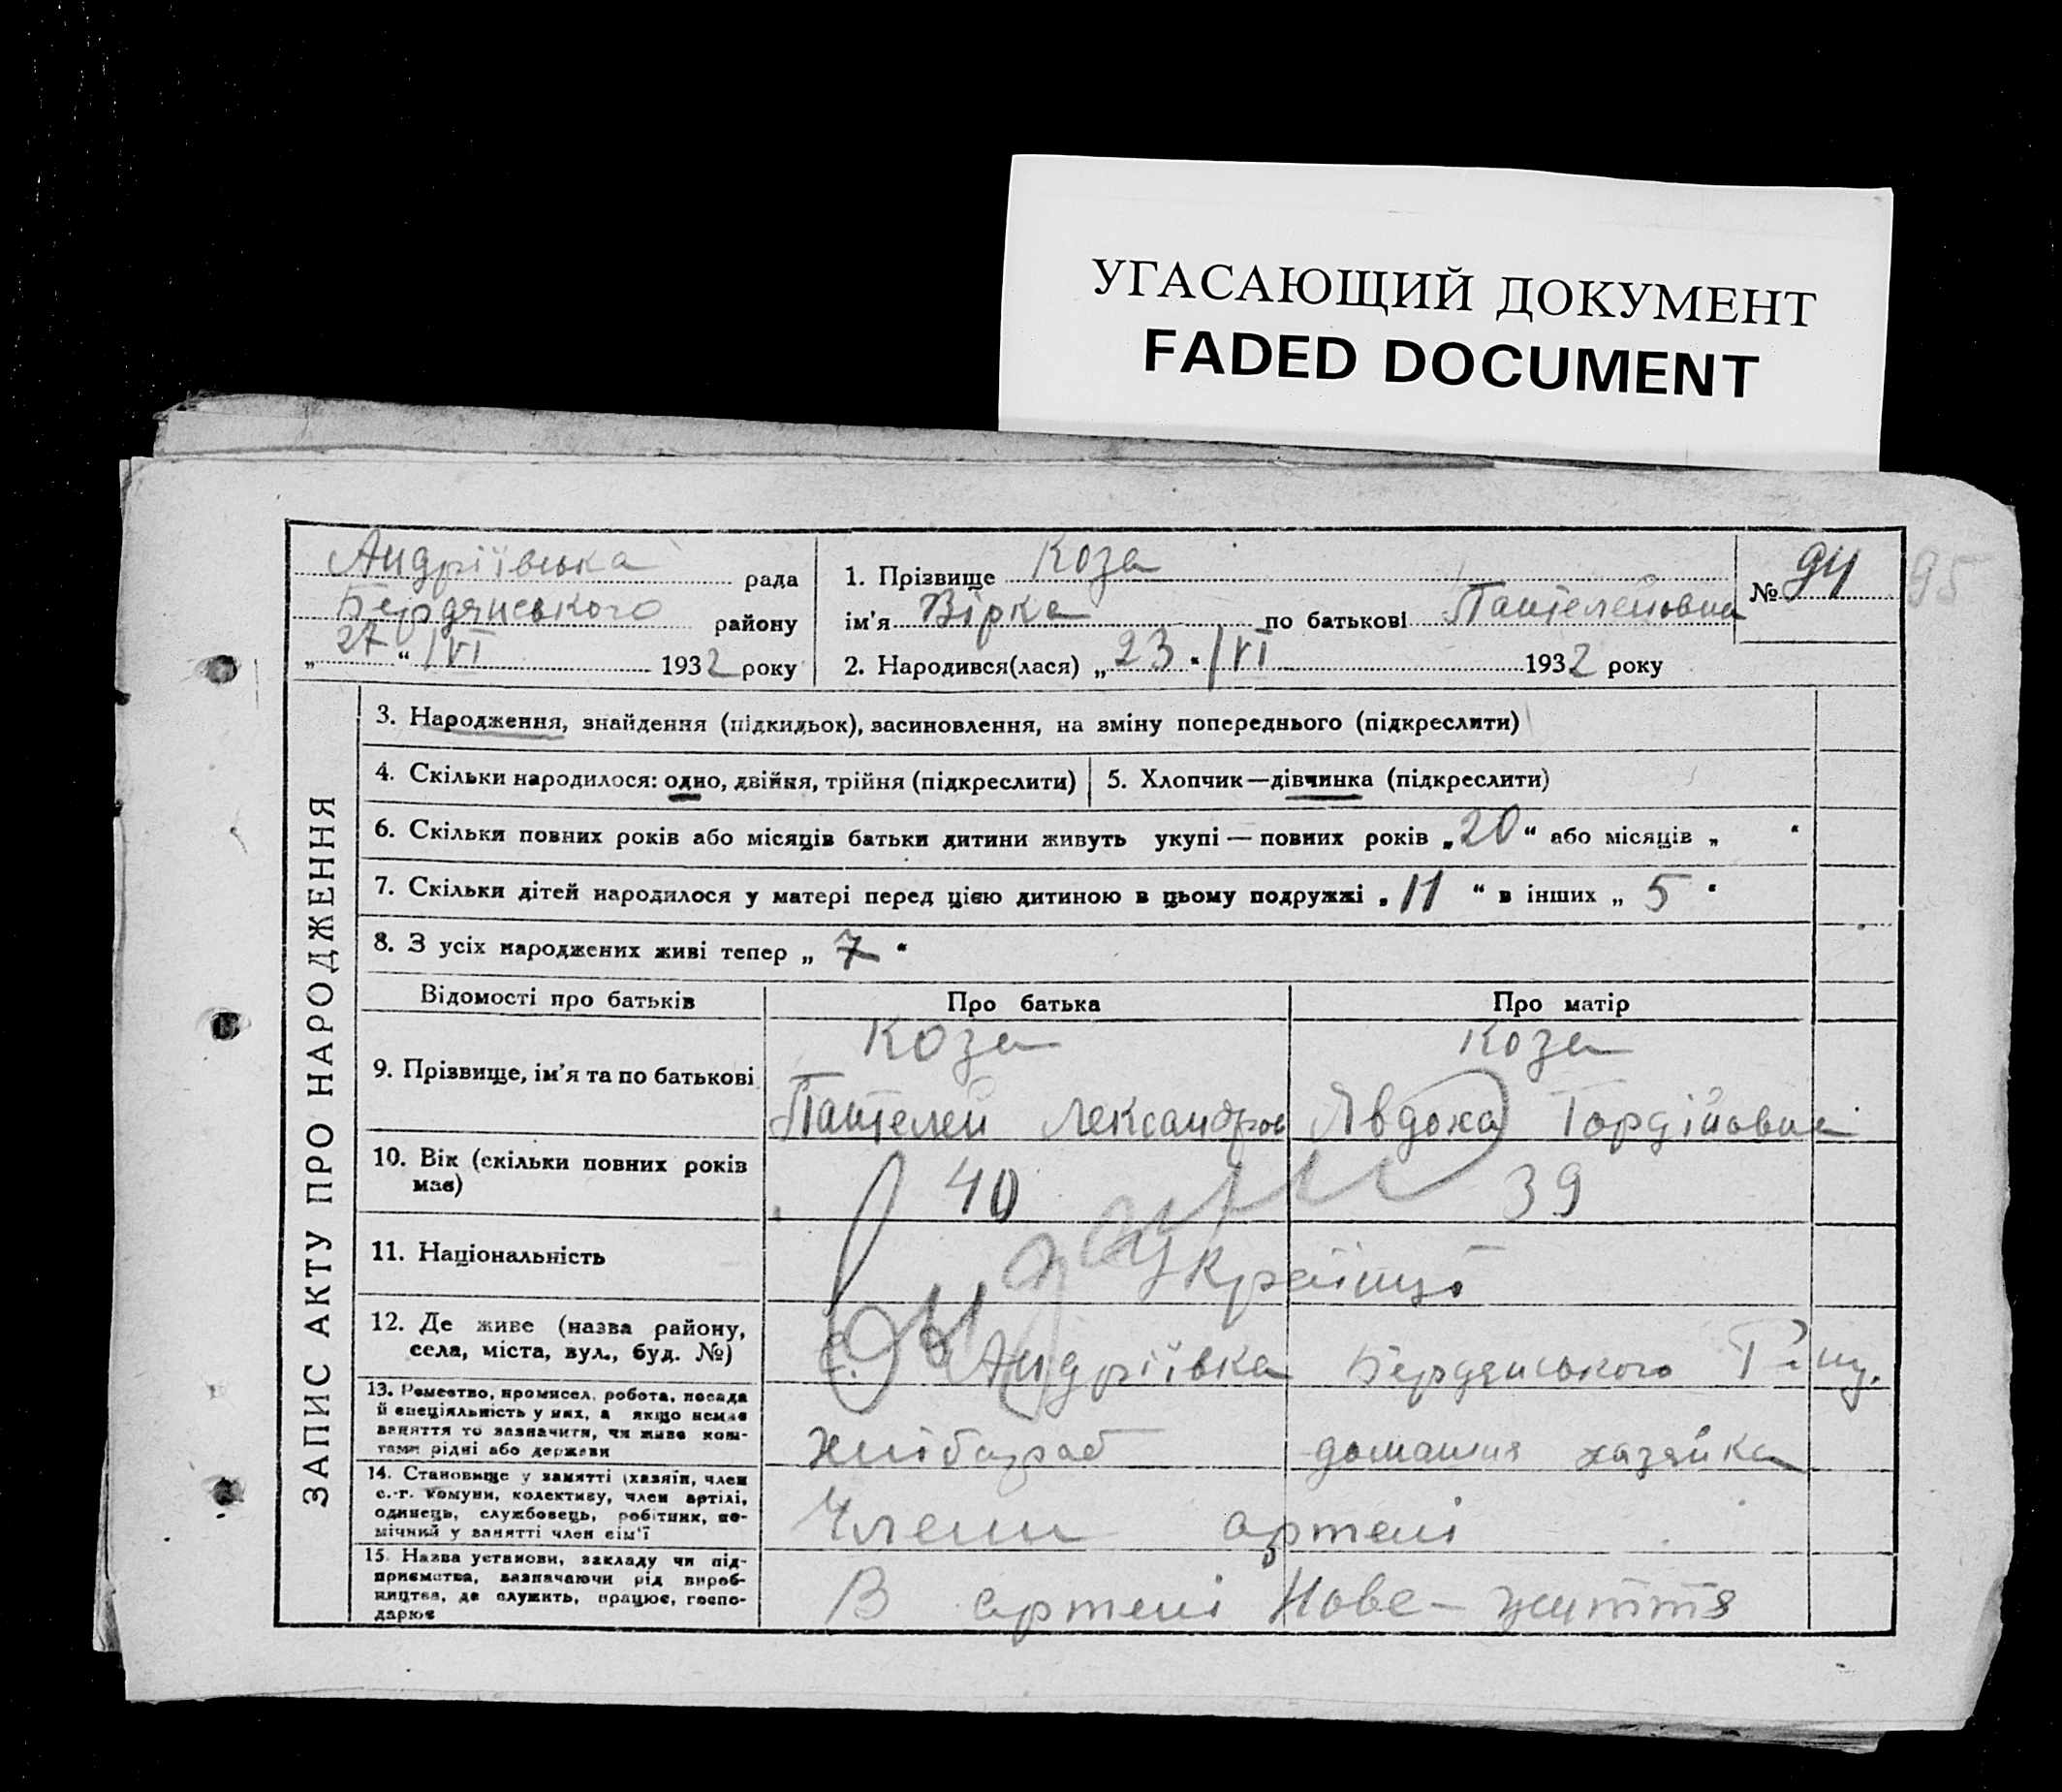 УГАСАЮЩИЙ ДОКУМЕНТ
FADED DOCUMENT
Андріївська рада
Бердянського району
„27“ /VI 1932 року
1. Прізвище Коза
№ 94 95
ім'я Вірка по батькові Пантелейовна
2. Народився(лася) „23“ /VI 1932 року
ЗАПИС АКТУ ПРО НАРОДЖЕННЯ
3. Народження, знайдення (підкидьок), засиновлення, на зміну попереднього (підкреслити)
4. Скільки народилося: одно, двійня, трійня (підкреслити)
5. Хлопчик—дівчинка (підкреслити)
6. Скільки повних років або місяців батьки дитини живуть укупі — повних років „20“ або місяців „ “
7. Скільки дітей народилося у матері перед цією дитиною в цьому подружжі „11“ в інших „5“
8. З усіх народжених живі тепер „7“
Відомості про батьків Про батька Про матір
9. Прізвище, ім'я та по батькові
Коза Коза
Пантелей Лександров Явдоха Гордійовна
10. Вік (скільки повних років має) 40 39
11. Національність Українці
12. Де живе (назва району, села, міста, вул., буд. №)
с. Андріївка Бердянського
13. Ремество, промисел, робота, посада й спеціяльність у них, а якщо немає заняття то зазначити, чи живе коштами рідні або держави
хлібороб домашня хазяйка
14. Становище у занятті (хазяїн, член с.-г. комуни, колективу, член артілі, одинець, службовець, робітник, помічний у занятті член сім'ї
Члени артелі
15. Назва установи, закладу чи підприємства, зазначаючи рід виробництва, де служить, працює, господарює
В артелі Нове-життя